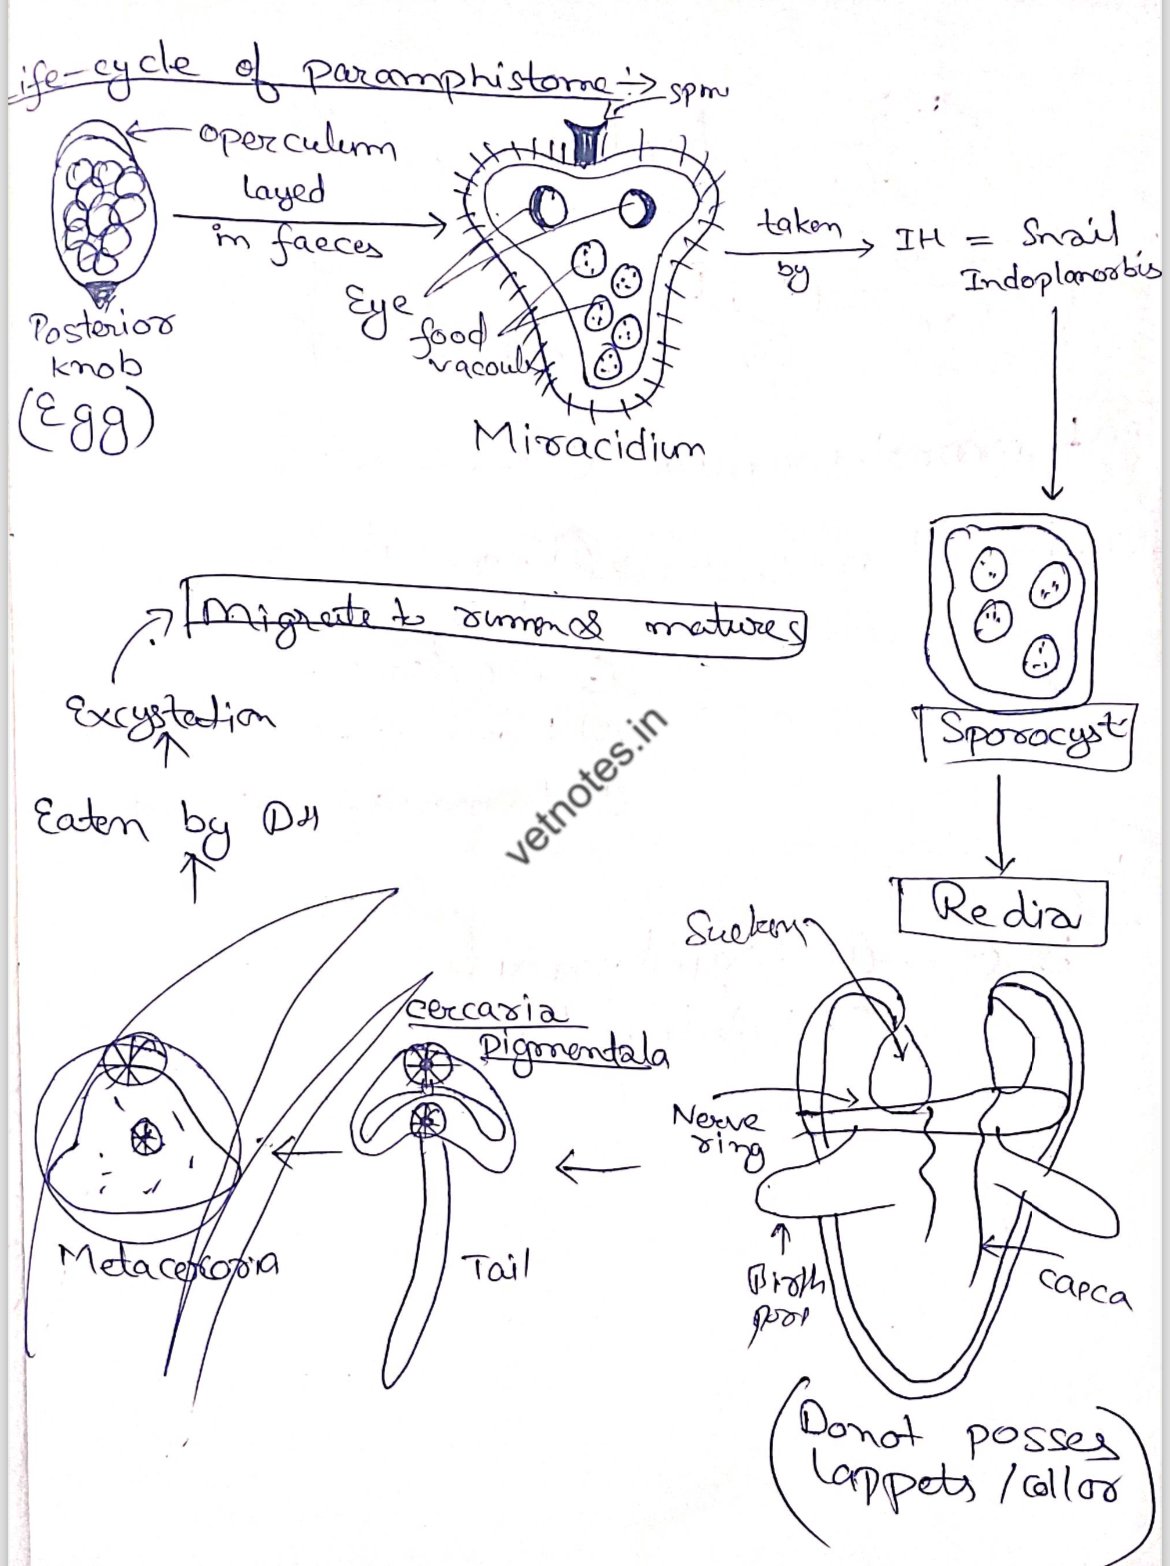 Life-cycle of paramphistome :->
spm
operculum
layed
in faeces
Posterior
knob
(Egg)
Eye
food
vacoule
Miracidium
taken
by
IH = Snail
Indoplanorbis
Sporocyst
Redia
Sucker
Nerve
ring
Birth
pore
caeca
(Donot posses
lappets / collor)
cercaria
Pigmentala
Tail
Metacercaria
Eaten by DH
Excystation
Migrate to rumen & matures
vetnotes.in